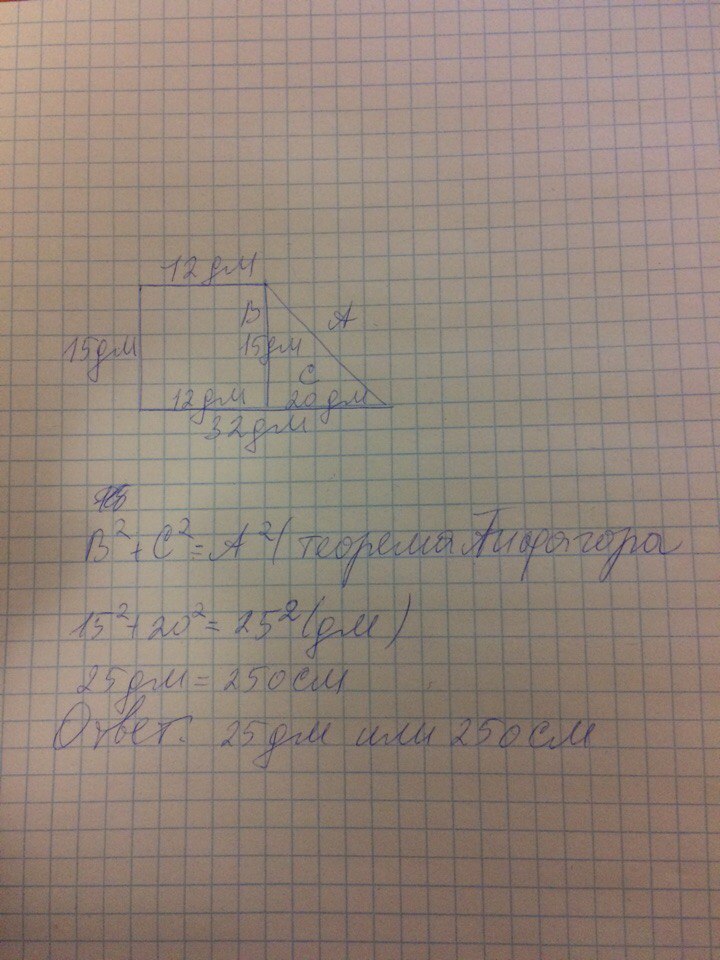 12 дм
B
A
15 дм
15 дм
C
12 дм
20 дм
32 дм
B² + C² = A² (теорема Пифагора
15² + 20² = 25² (дм)
25 дм = 250 см
Ответ. 25 дм или 250 см